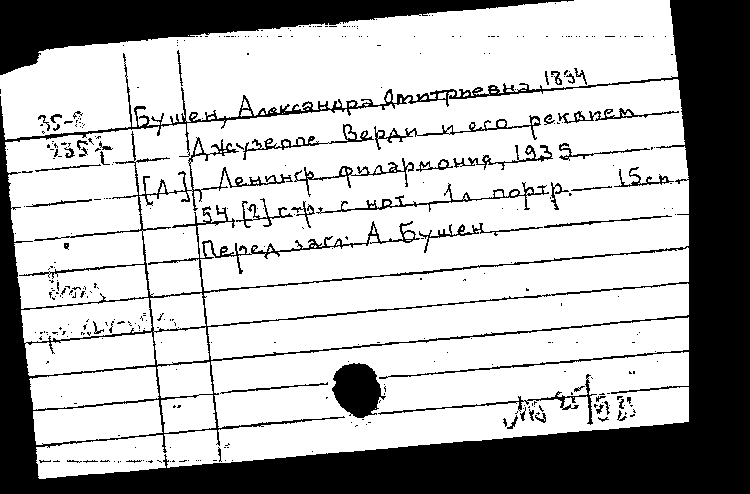 35-8
2357
Бушен, Александра Дмитриевна, 1894
Джузеппе Верди и его реквием.
[Л.], Ленингр. филармония, 1935.
54, [2] стр. с нот., 1 л портр. 15 см.
Перед загл: А. Бушен.